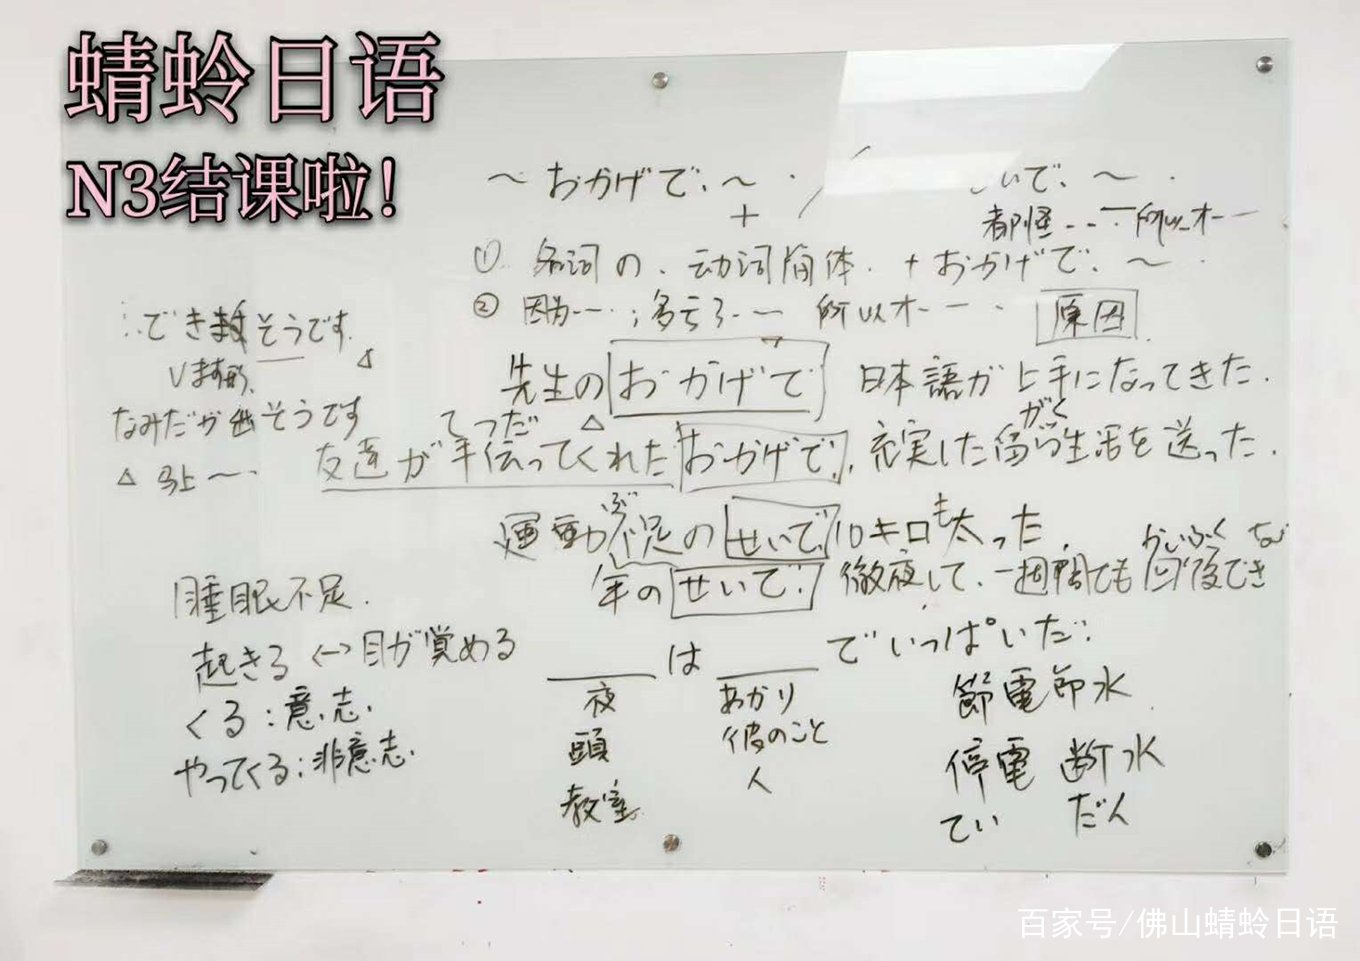 蜻蛉日语
N3结课啦!
～おかげで、～
いで、～
+
都怪……所以才……
① 名词の、动词简体 + おかげで、～
② 因为……;多亏了……所以才…… 原因
できますそうです
ます形
先生のおかげで 日本語が上手になってきた.
なみだが出そうです
てつだ
がく
△ 马上～
友達が手伝ってくれたおかげで、充実した留学生活を送った.
ぶ
も
運動不足のせいで、10キロ太った.
かいふく
年のせいで、徹夜して、一週間ても回復でき
睡眠不足.
起きる ↔ 目が覚める
＿＿は＿＿でいっぱいだ.
夜 あかり
節電 節水
くる:意志.
頭 彼のこと
やってくる:非意志.
停電 断水
教室 人
てい だん
百家号/佛山蜻蛉日语